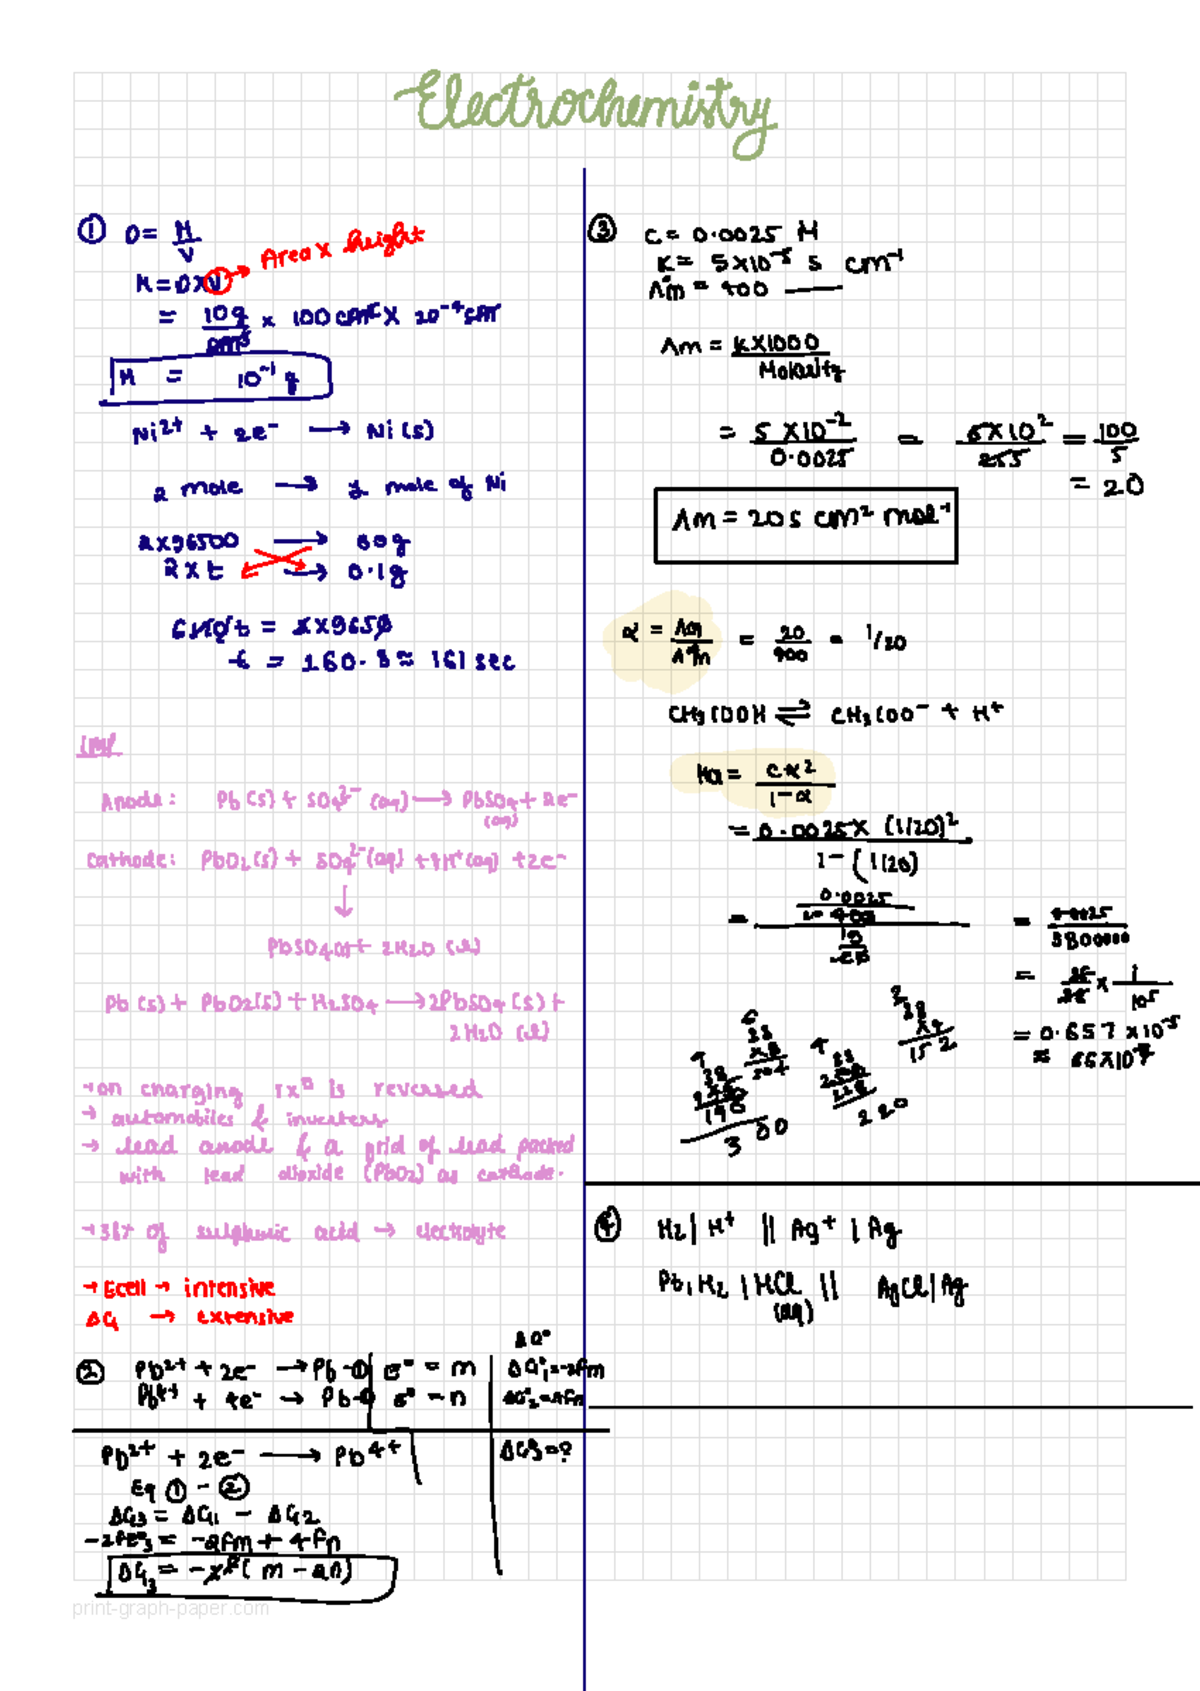 Electrochemistry
① D = M/V
M = D x V → Area x height
= 10g/cm³ x 100 cm² x 10⁻⁴ cm
M = 10⁻¹ g
Ni²⁺ + 2e⁻ → Ni(s)
2 mole → 1 mole of Ni
2x96500 → 60g
2 x t → 0.1g
t = 160.8 ≈ 161 sec
IMP
Anode: Pb(s) + SO₄²⁻(aq) → PbSO₄ + 2e⁻
(aq)
Cathode: PbO₂(s) + SO₄²⁻(aq) + 4H⁺(aq) + 2e⁻
↓
PbSO₄ + 2H₂O (l)
Pb(s) + PbO₂(s) + H₂SO₄ → 2PbSO₄(s) +
2H₂O (l)
→ on charging rxⁿ is reversed
→ automobiles & inverters
→ lead anode & a grid of lead packed
with lead dioxide (PbO₂) as cathode.
→ 38% of sulphuric acid → electrolyte
→ Ecell → intensive
ΔG → extensive
ΔG°
② Pb²⁺ + 2e⁻ → Pb -① | E° = m | ΔG°₁ = -2Fm
Pb⁴⁺ + 4e⁻ → Pb -② E° = n ΔG°₂ = -4Fn
Pb²⁺ + 2e⁻ → Pb⁴⁺ ΔG°₃ = ?
Eq ① - ②
ΔG₃ = ΔG₁ - ΔG₂
-2FE°₃ = -2Fm + 4Fn
ΔG₃ = -2F(m - 2n)
③ C = 0.0025 M
K = 5x10⁻⁵ S cm⁻¹
Λ°m = 400
Λm = K x 1000/Molarity
= 5 x 10⁻²/0.0025 = 5x10²/25 = 100/5
= 20
Λm = 20 S cm² mol⁻¹
α = Λm/Λ°m = 20/400 = 1/20
CH₃COOH ⇌ CH₃COO⁻ + H⁺
Ka = Cα²/1-α
= 0.0025 x (1/20)²
1 - (1/20)
= 0.0025/400
= 0.0025/3800000
= 25/38 x 1/10⁵
= 0.657 x 10⁻⁵
≈ 66x10⁻⁷
④ H₂ | H⁺ || Ag⁺ | Ag
Pt, H₂ | HCl || AgCl | Ag
(aq)
print-graph-paper.com